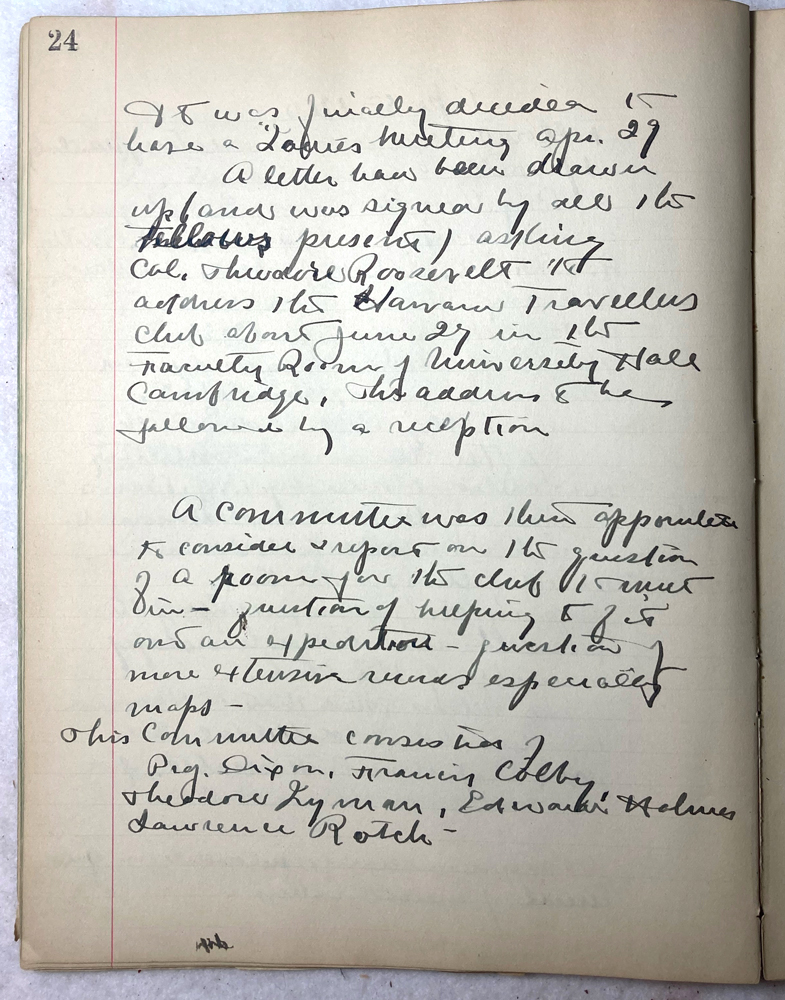 24
It was finally decided to
have a "Ladies Meeting Apr. 29
A letter had been drawn
up (and was signed by all the
fellows present) asking
Col. Theodore Roosevelt to
address the Harvard Travellers
club about June 27 in the
Faculty Room of University Hall
Cambridge, the address to be
followed by a reception
A committee was then appointed
to consider & report on the question
of a room for the club to meet
in - question of helping to fit
out an expedition - question of
more extensive records especially
maps -
This Committee consisted of
Prof. Dixon, Francis Colby,
Theodore Lyman, Edward Holmes
Lawrence Rotch -